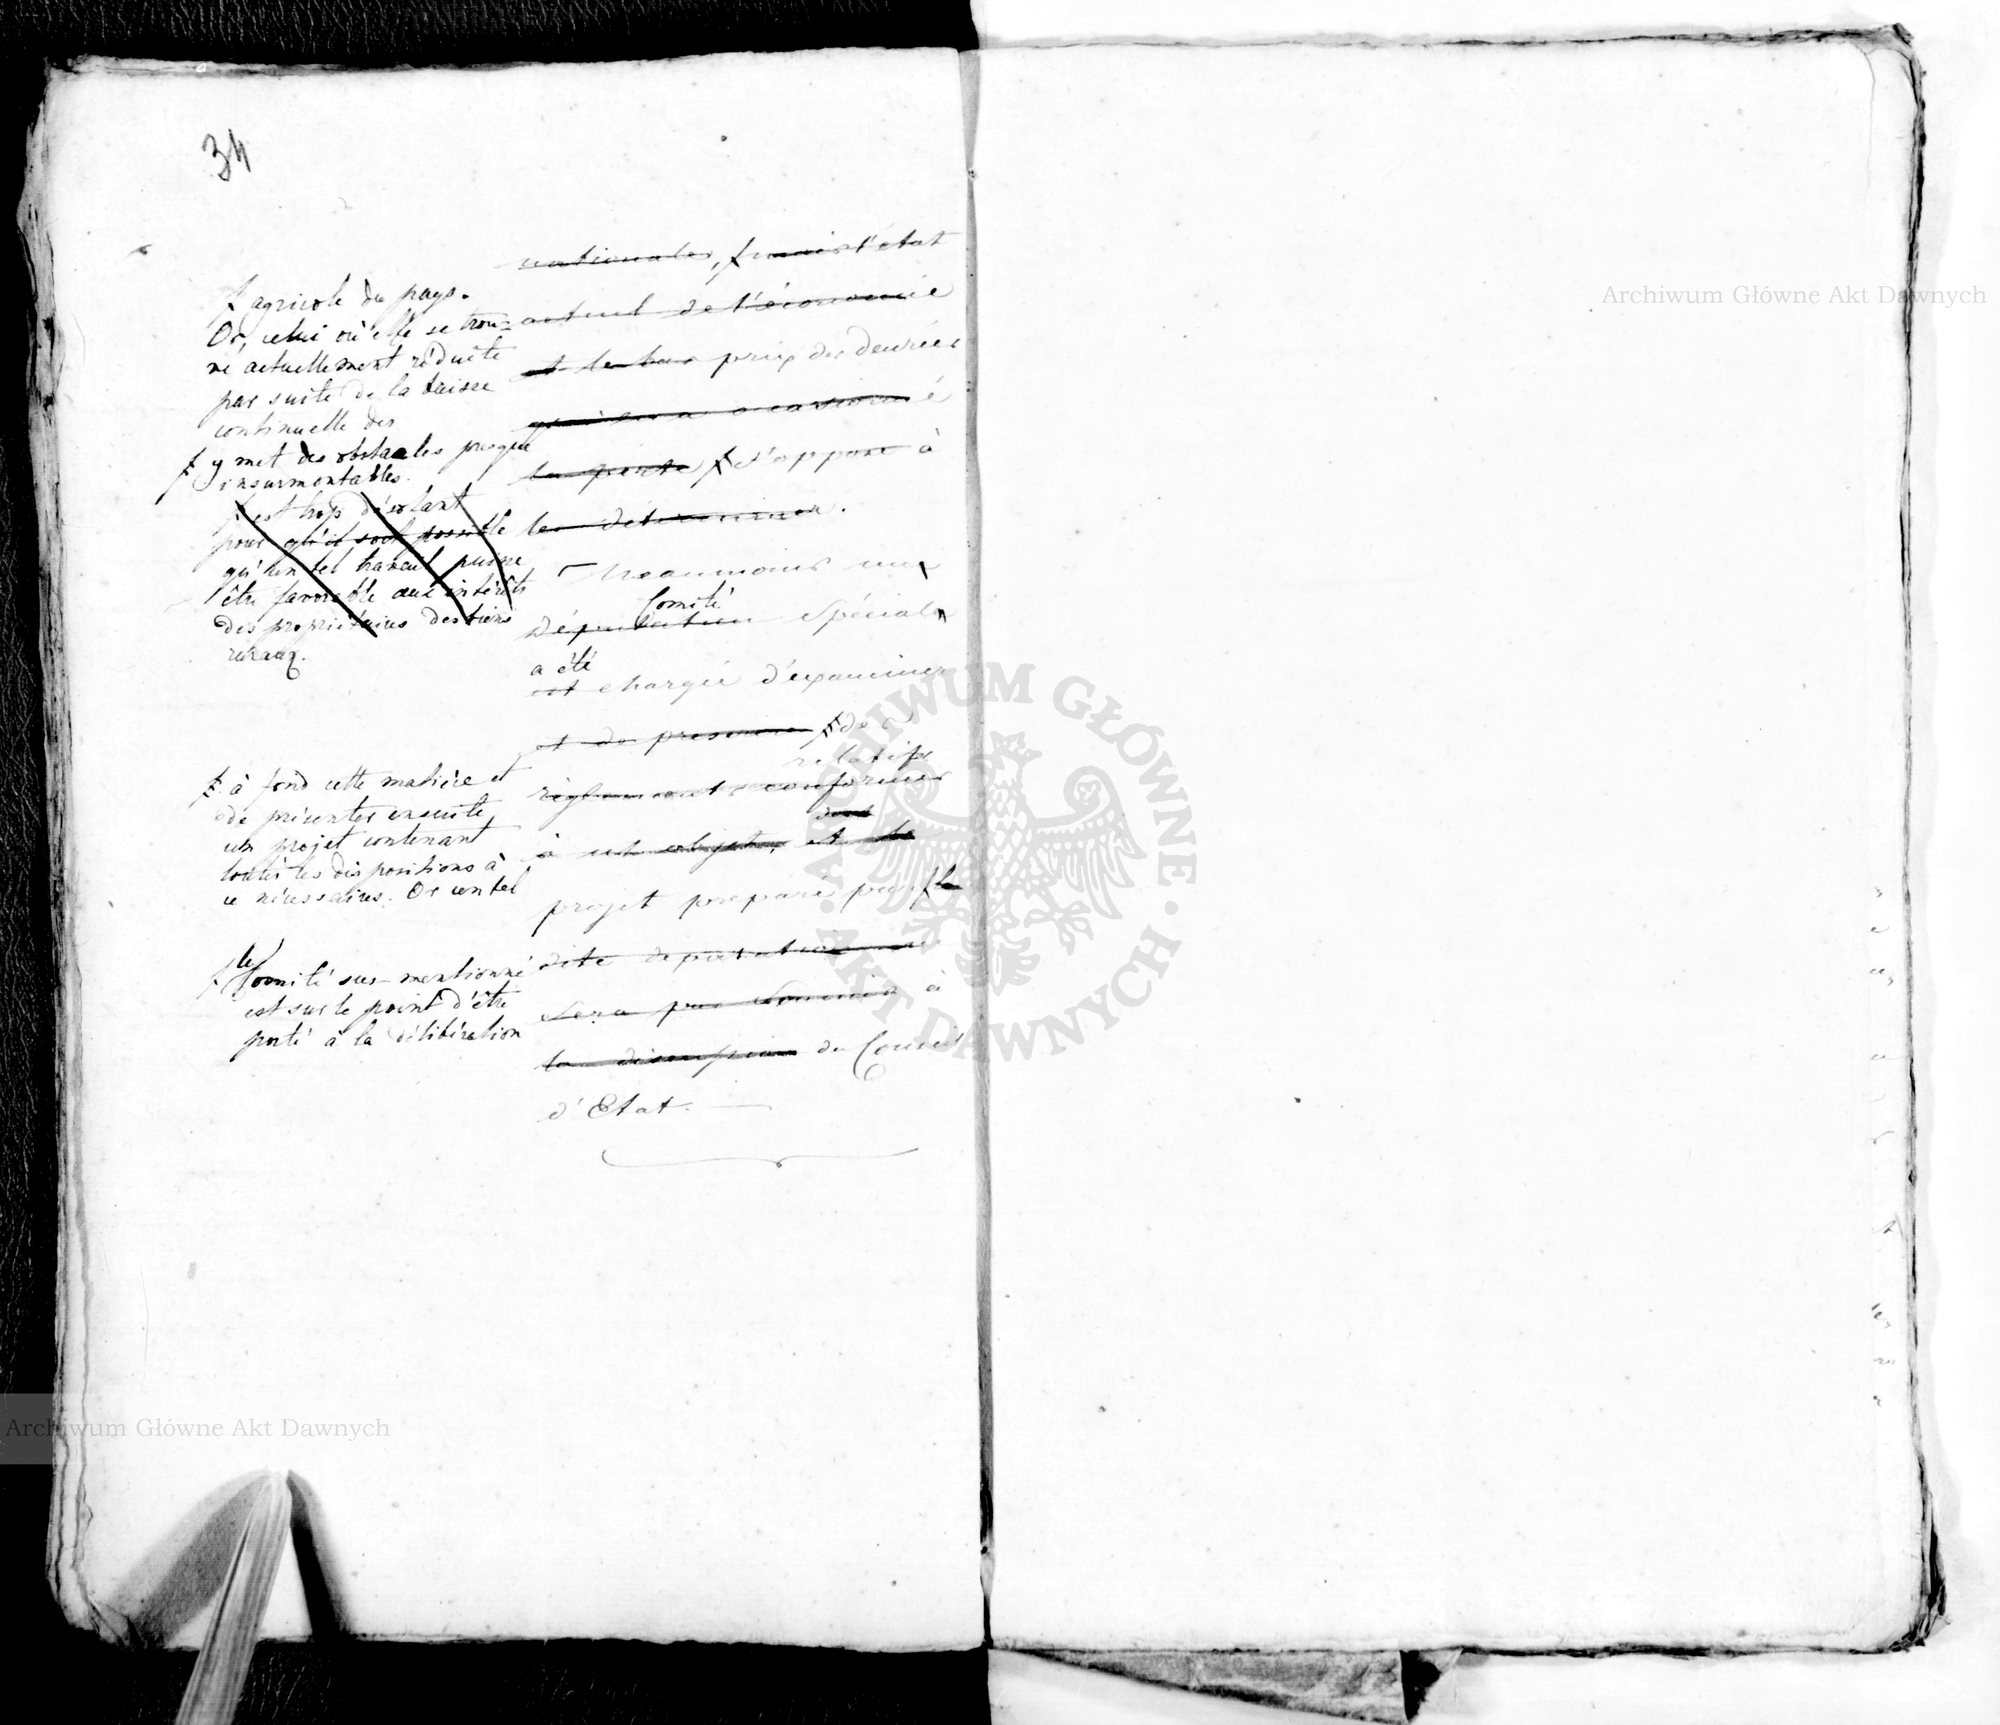 34
ƒ agricole du pays.
Or, celui où elle se trou=
ve actuellement réduite
par suite de la baisse
continuelle des
ƒ y met des obstacles presque
insurmontables.
ƒ est trop désolant
pour qu'il soit possible
qu'un tel travail puisse
être favorable aux intérêts
des propriétaires des biens
ruraux.
ƒ à fond cette matière et
de présenter ensuite
un projet contenant
toutes les dispositions à
ce nécessaires. Or un tel
ƒ le Comité sus-mentionné
est sur le point d'être
porté à la délibération
nationales, ƒ mais l'état
actuel de l'économie
et le bas prix des denrées
occasionné
la perte ƒ s'oppose à
les déterminer.
Néanmoins un
Comité
Députation Spécial
a été
est chargée d'examiner
et de ƒ des
relatifs
règlements conformes
dont
à cet objet, et le
projet préparé par ƒ la
dite députation
sera soumis à
la discussion du Conseil
d'Etat.
Archiwum Główne Akt Dawnych
ARCHIWUM GŁÓWNE AKT DAWNYCH
Archiwum Główne Akt Dawnych